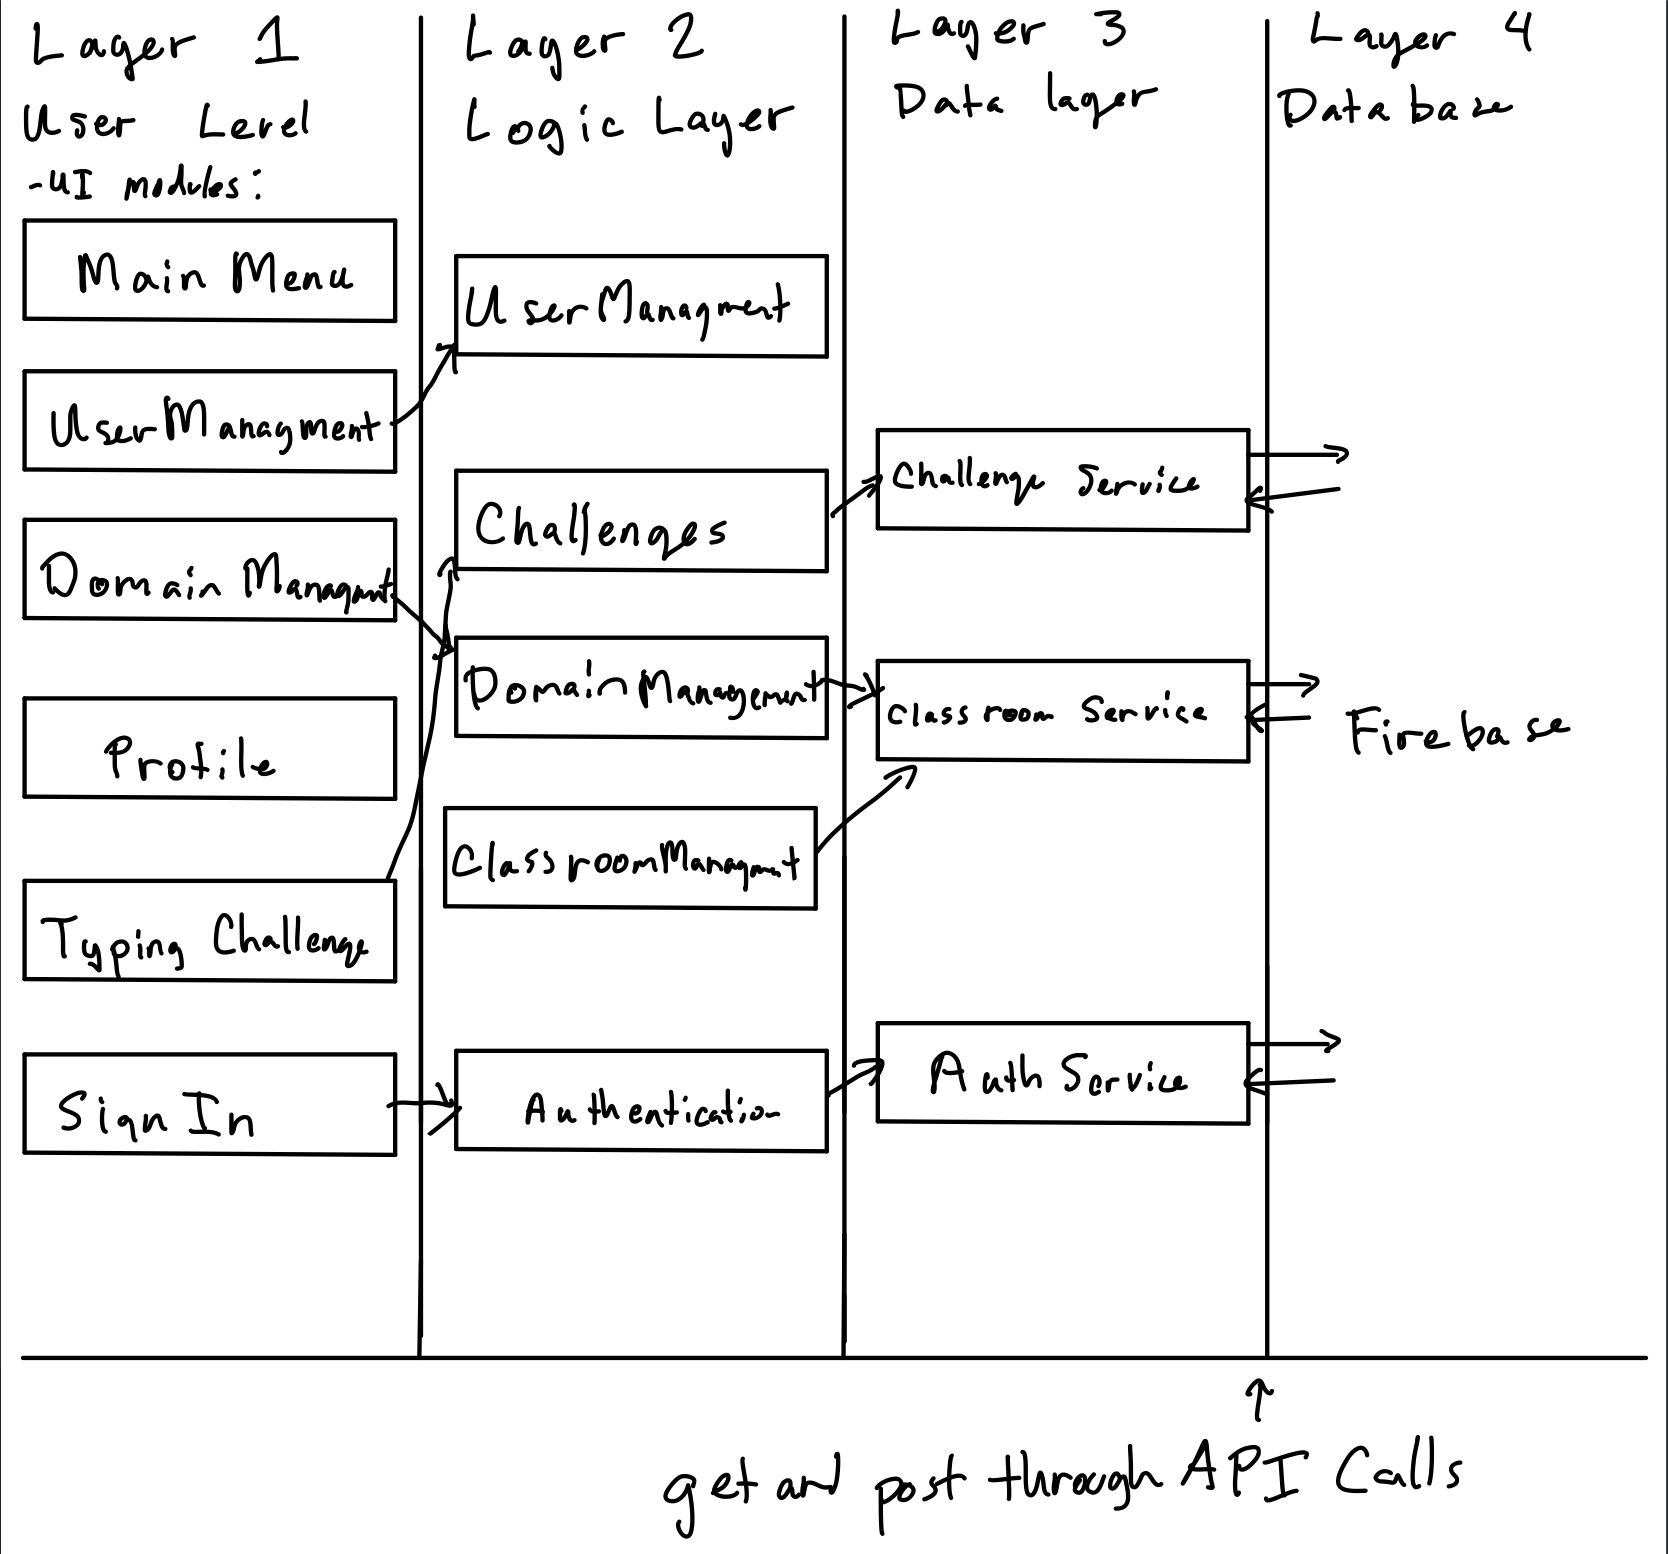 Layer 1
User Level
-UI modules:
Main Menu
User Managment
Domain Managmnt
Profile
Typing Challenge
Sign In
Layer 2
Logic Layer
User Managment
Challenges
Domain Management
Classroom Managmnt
Authentication
Layer 3
Data layer
Challenge Service
Classroom Service
Auth Service
Layer 4
Database
Firebase
get and post through API Calls